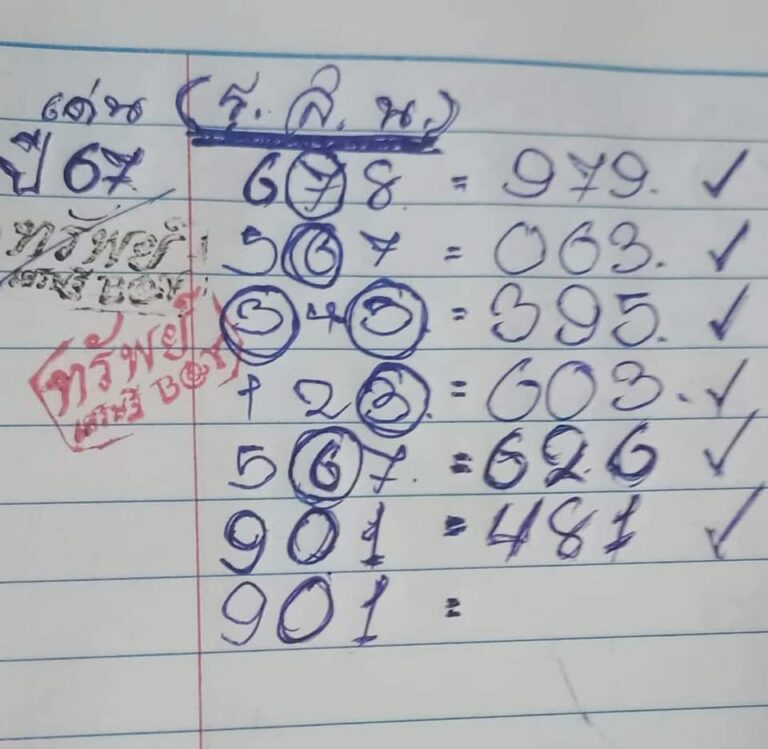 เด่น (ร. ส. น.)
ปี 67
678 = 979. ✓
567 = 063. ✓
345. = 395. ✓
123. = 603. ✓
567. = 626 ✓
901 = 481 ✓
901 =
ทรัพย์
เศรษฐี BOY
ทรัพย์
เศรษฐี BOY